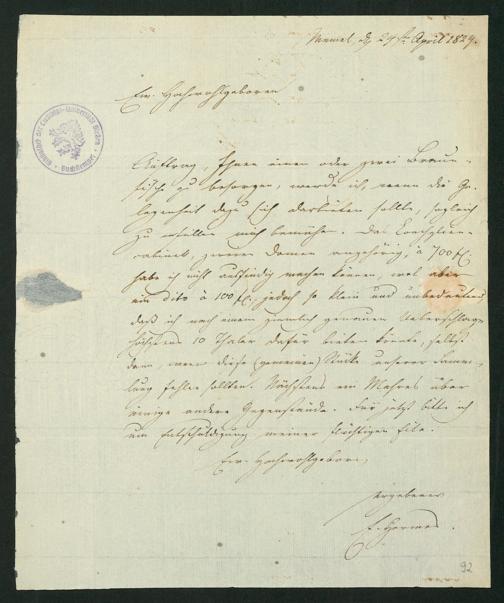 Memel, d. 29ten April 1824.
Ew. Hochwohlgeboren
Auftrag, Ihnen einen oder zwei Braun-
fische zu besorgen, werde ich, wenn die Ge-
legenheit dazu sich darbieten sollte, sogleich
zu erfüllen mich bemühen. Das Conchylien-
cabinet, zweien Damen angehörig, à 700 fl.
habe ich nicht ausfindig machen können, wol aber
ein dito à 100 fl., jedoch so klein und unbedeutend,
daß ich nach einem ziemlich genauen Ueberschlage
höchstens 10 Thaler dafür bieten könnte, selbst
dann, wenn diese (gemeinen) Stücke unserer Samm-
lung fehlen sollten. Nächstens ein Mehres über
einige andere Gegenstände. Für jetzt bitte ich
um Entschuldigung meiner flüchtigen Eile.
Ew. Hochwohlgeboren,
ergebener
92